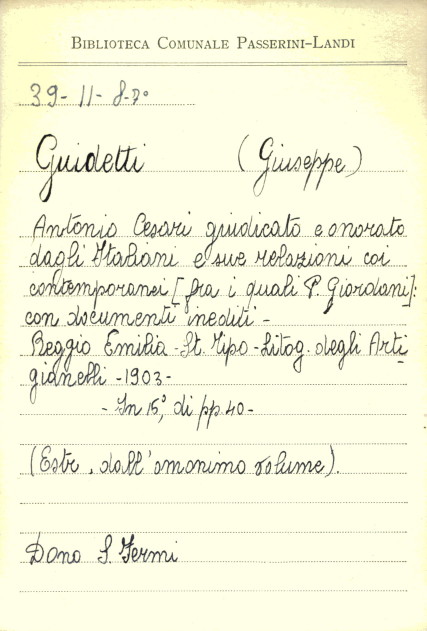 BIBLIOTECA COMUNALE PASSERINI-LANDI
39-11-8-7º
Guidetti (Giuseppe)
Antonio Cesari giudicato e onorato
dagli Italiani e sue relazioni coi
contemporanei [fra i quali P. Giordani]:
con documenti inediti -
Reggio Emilia - St. Tipo - Litog. degli Arti
gianelli - 1903 -
- In 15º, di pp. 40 -
(Estr. dall'omonimo volume).
Dono S. Fermi